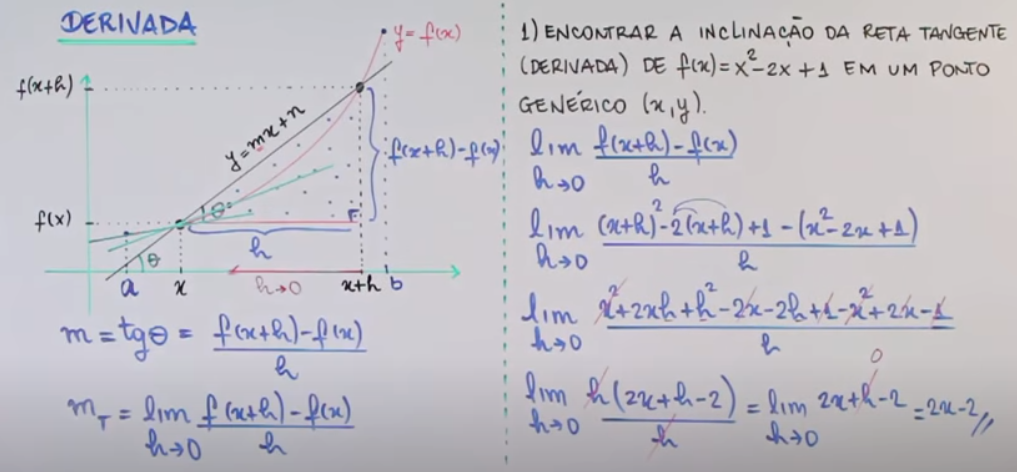 DERIVADA
y=f(x)
f(x+h)
y=mx+n
f(x+h)-f(x)
f(x)
θ
h
θ
a x h→0 x+h b
m=tgθ= f(x+h)-f(x) / h
m_T = lim h→0 f(x+h)-f(x) / h
1) ENCONTRAR A INCLINAÇÃO DA RETA TANGENTE
(DERIVADA) DE f(x)=x²-2x+1 EM UM PONTO
GENÉRICO (x,y).
lim h→0 f(x+h)-f(x) / h
lim h→0 (x+h)²-2(x+h)+1-(x²-2x+1) / h
lim h→0 x²+2xh+h²-2x-2h+1-x²+2x-1 / h
lim h→0 h(2x+h-2) / h = lim h→0 2x+h-2 = 2x-2//
0